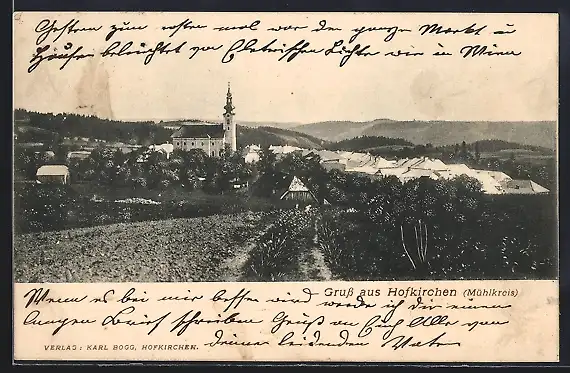 Gestern zum ersten mal war der ganze Markt u
Häuser beleuchtet von Elektrischen Licht wie in Wien
Gruß aus Hofkirchen (Mühlkreis)
Wenn es bei mir besser wird werde ich dir einen
langen Brief schreiben Grüße an Euch Alle von
deiner leidenden Vater
VERLAG: KARL BOGG, HOFKIRCHEN.